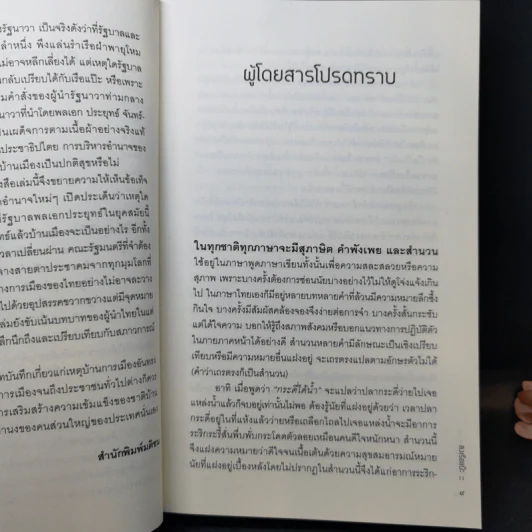 งรัฐนาวา เป็นจริงดังว่าที่รัฐบาลและ
ลำหนึ่ง พึงแล่นรำเรือฝ่าพายุไหม
ไม่อาจหลีกเลี่ยงได้ แต่เหตุใดรัฐบาล
กลับเปรียบได้กับเรือแป๊ะ หรือเพราะ
มคำสั่งของผู้นำรัฐนาวาท่ามกลาง
นาวาที่นำโดยพลเอก ประยุทธ์ จันทร์-
ป็นเผด็จการตามเนื้อผ้าอย่างจริงแท้
ประชาธิปไตย การบริหารอำนาจของ
บ้านเมืองเป็นปกติสุขหรือไม่
สือเล่มนี้จึงขยายความให้เห็นข้อเท็จ
อำนาจใหม่ๆ เปิดประเด็นว่าเหตุใด
รัฐบาลพลเอกประยุทธ์ในยุคสมัยนี้
ทธ์แล้วบ้านเมืองจะเป็นอย่างไร อีกทั้ง
วลาเปลี่ยนผ่าน คณะรัฐมนตรีที่จำต้อง
ลางสายตาประชาคมจากทุกมุมโลกที่
างการเมืองของไทยอย่างไม่อาจวางว
ไปด้วยอุปสรรคขวากขวางแต่มีจุดหมาย
ล่มยังขับเน้นบทบาทของผู้นำไทยในแต่
ลึกนึกถึงและเปรียบเทียบกับสภาวการณ์
ทบันทึกเกี่ยวแก่เหตุบ้านการเมืองอันทรง
การเมืองจนถึงประชาชนทั่วไปต่างก็ควร
การเสริมสร้างความเข้มแข็งของชาติบ้าน
านงของคนส่วนใหญ่ของประเทศนั่นเอง
สำนักพิมพ์มติชน
ผู้โดยสารโปรดทราบ
ในทุกชาติทุกภาษาจะมีสุภาษิต คำพังเพย และสำนวน
ใช้อยู่ในภาษาพูดภาษาเขียนทั้งนั้นเพื่อความสละสลวยหรือความ
สุภาพ เพราะบางครั้งต้องการซ่อนนัยบางอย่างไว้ไม่ให้ดูโจ่งแจ้งเกิน
ไป ในภาษาไทยเองก็มีอยู่หลายบทหลายคำที่ล้วนมีความหมายลึกซึ้ง
กินใจ บางครั้งมีสัมผัสคล้องจองจึงง่ายต่อการจำ บางครั้งสั้นกระชับ
แต่ได้ใจความ บอกให้รู้ถึงสภาพสังคมหรือบอกแนวทางการปฏิบัติตัว
ในภายภาคหน้าได้อย่างดี สำนวนหลายคำมีลักษณะเป็นเชิงเปรียบ
เทียบหรือมีความหมายอื่นแฝงอยู่ จะเถรตรงแปลตามอักษรตัวไม่ได้
(คำว่าเถรตรงก็เป็นสำนวน)
อาทิ เมื่อพูดว่า “กระดี่ได้น้ำ” จะแปลว่าปลากระดี่ว่ายไปเจอ
แหล่งน้ำแล้วก็จบอยู่เท่านั้นไม่พอ ต้องรู้นัยที่แฝงอยู่ด้วยว่า เวลาปลา
กระดี่อยู่ในที่แห้งแล้วว่ายหรือเถลือกไถลไปเจอแหล่งน้ำจะมีอาการ
ระริกระรี้สั่นพึ่บพั่บกระโดดตัวลอยเหมือนคนดีใจหนักหนา สำนวนนี้
จึงแฝงความหมายว่าดีใจจนเนื้อเต้นด้วยความสุขสมอารมณ์หมาย
นัยที่แฝงอยู่เบื้องหลังโดยไม่ปรากฏในสำนวนนี้จึงได้แก่อาการระริก-
ลงเรือแป๊ะ ::
๙